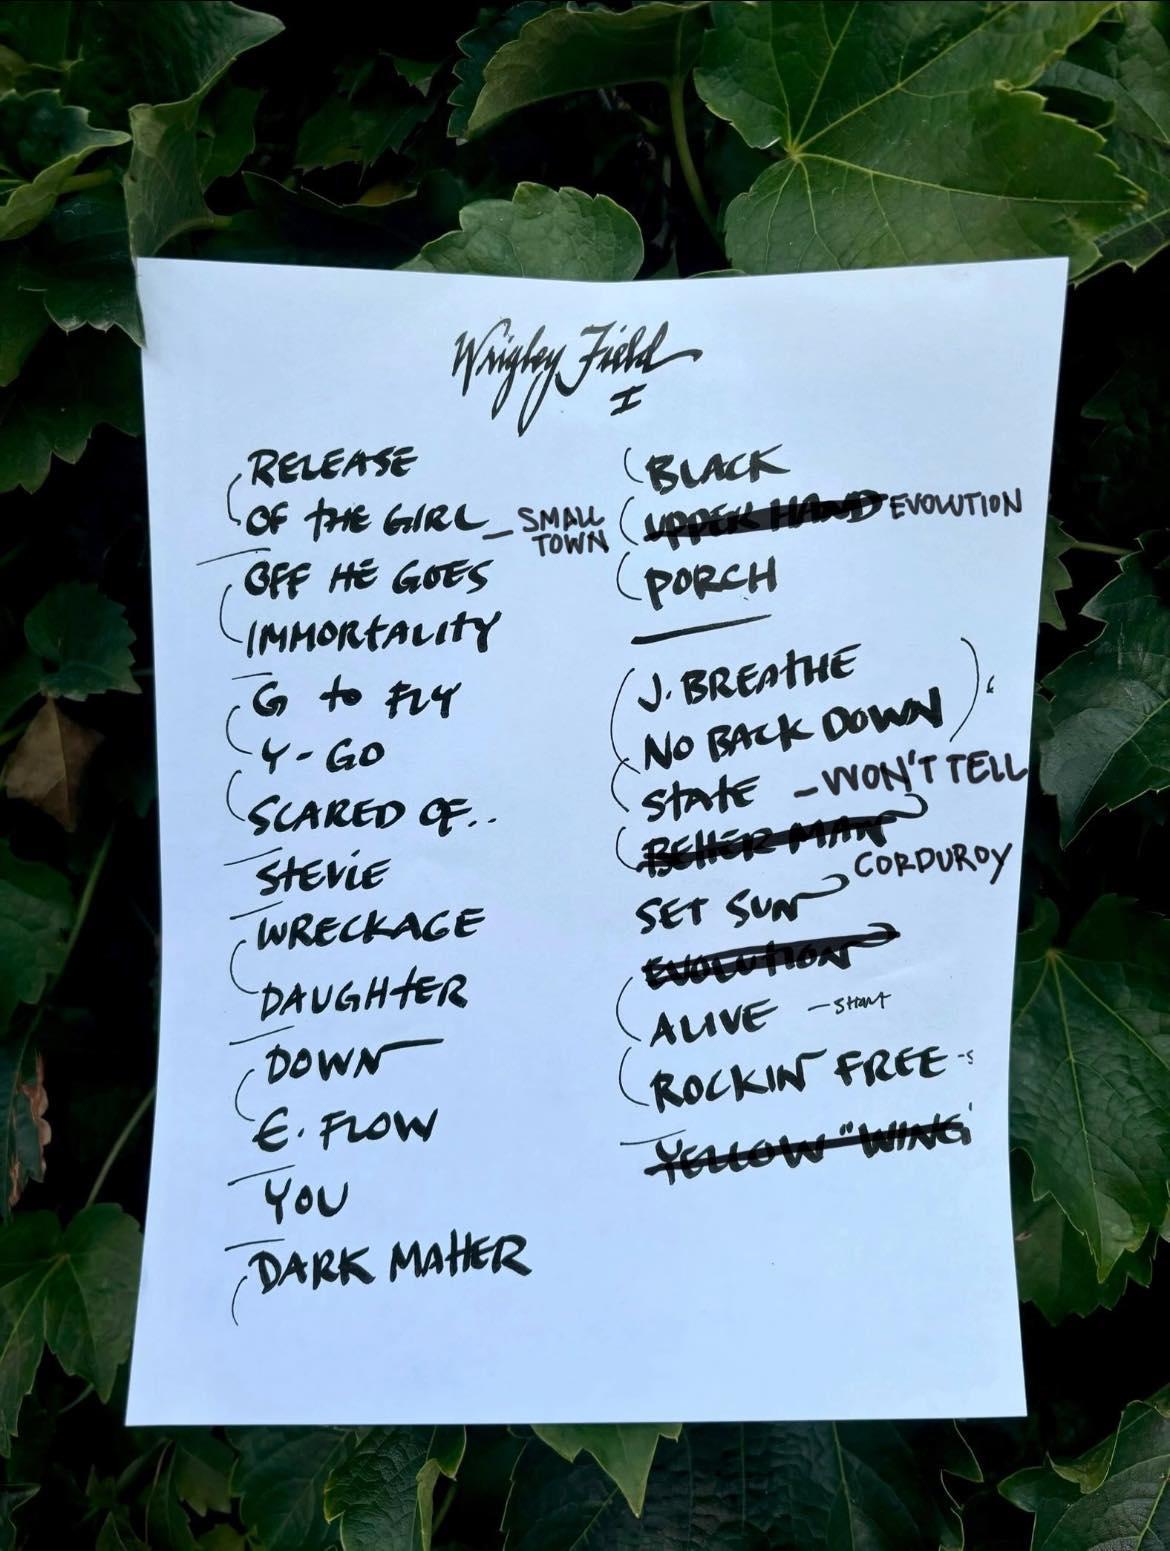 Wrigley Field
I
RELEASE
OF THE GIRL - SMALL TOWN
OFF HE GOES
IMMORTALITY
G to FLY
Y-GO
SCARED OF..
STEVIE
WRECKAGE
DAUGHTER
DOWN
E. FLOW
YOU
DARK MATTER
BLACK
UPPER HAND EVOLUTION
PORCH
J. BREATHE
NO BACK DOWN
STATE - WON'T TELL
BETTER MAN
CORDUROY
SET SUN
EVOLUTION
ALIVE - short
ROCKIN FREE -s
YELLOW "WING'